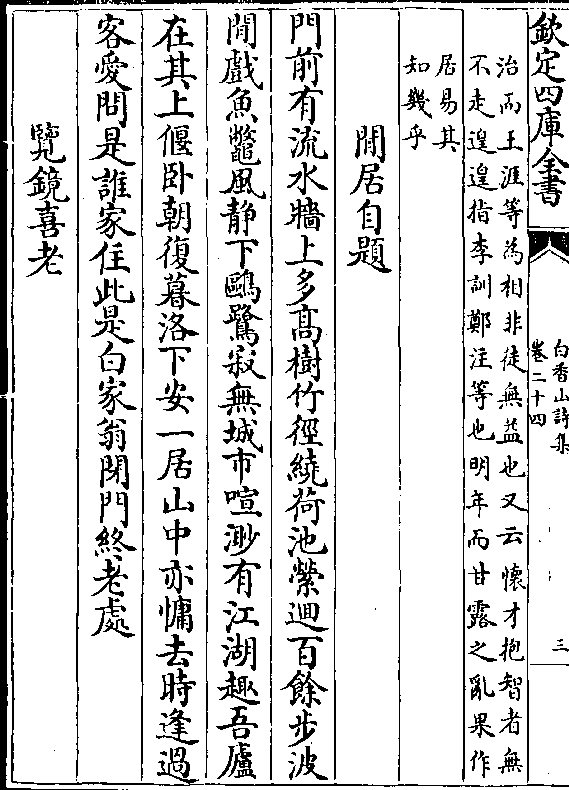 欽定四庫全書
白香山詩集
卷二十四
三
治而王涯等為相非徒無益也又云懷才抱智者無
不走遑遑指李訓鄭注等也明年而甘露之亂果作
居易其
知幾乎
閒居自題
門前有流水牆上多髙樹竹徑繞荷池縈迴百餘步波
閒戲魚鼈風静下鷗鷺寂無城市喧渺有江湖趣吾廬
在其上偃卧朝復暮洛下安一居山中亦慵去時逢過
客愛問是誰家住此是白家翁閉門終老處
覽鏡喜老